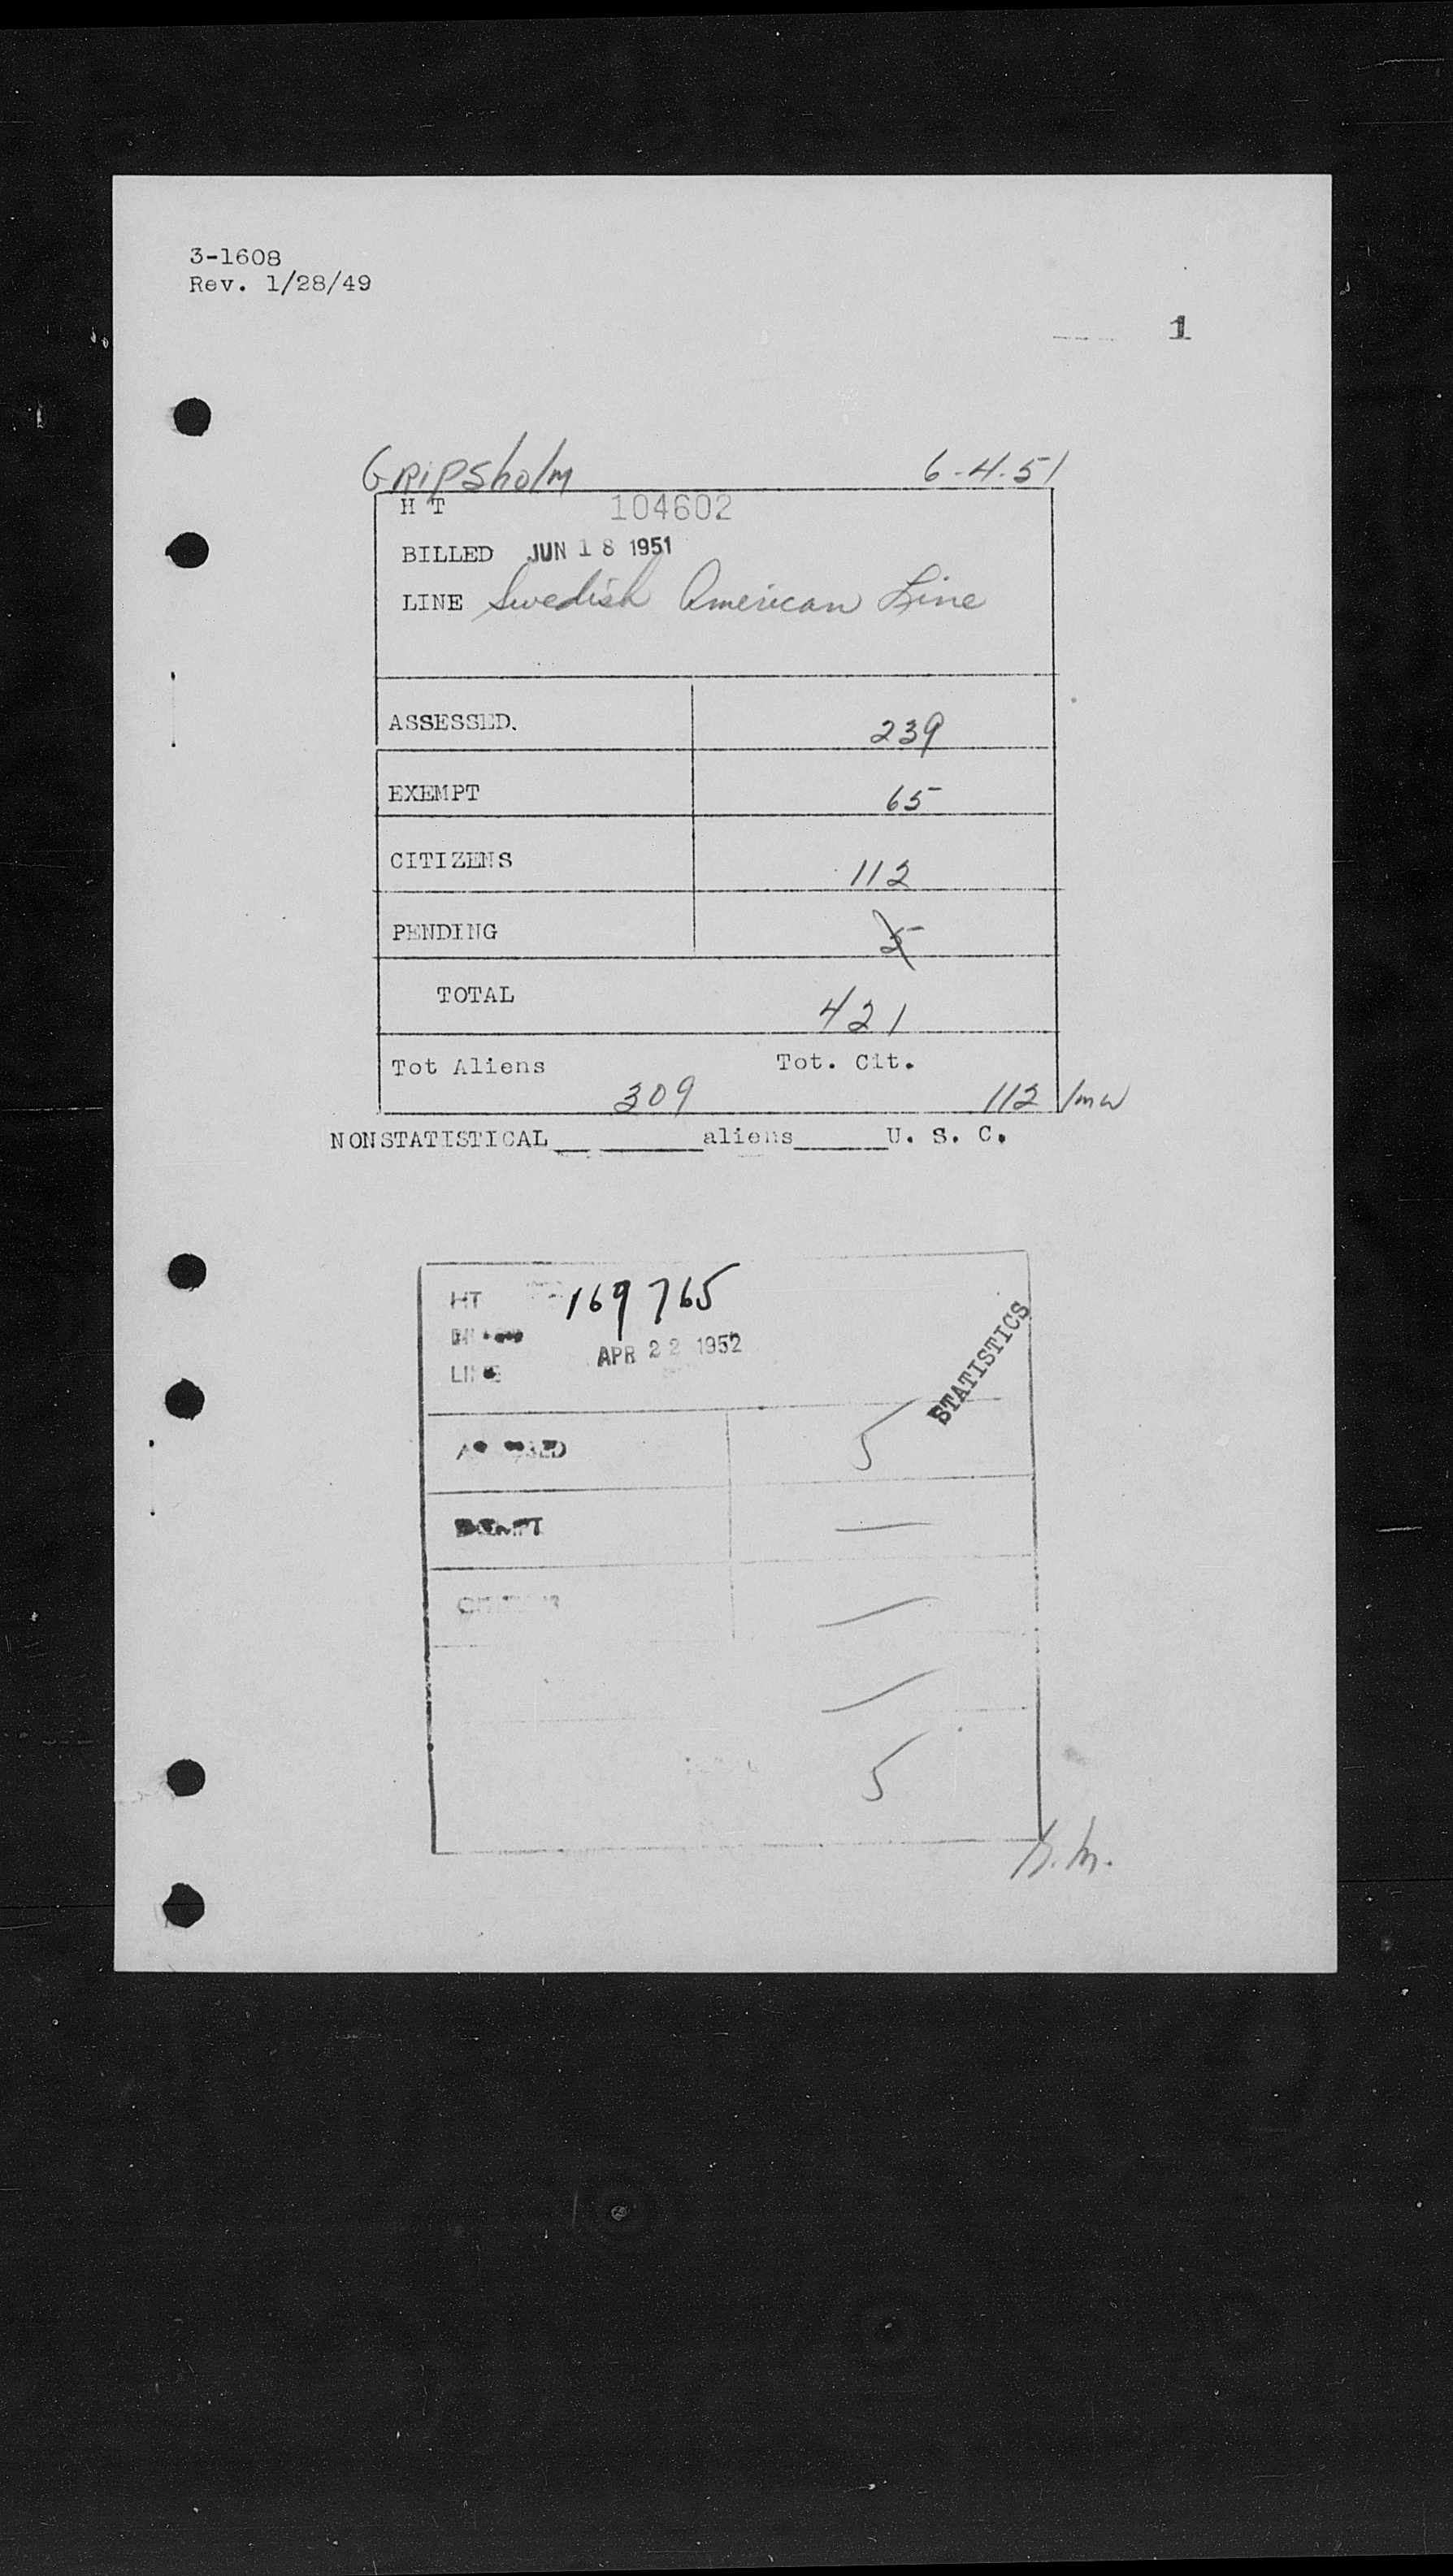 3-1608
Rev. 1/28/49
1
GRIPSholm 6-4-51
H T 104602
BILLED JUN 18 1951
LINE Swedish American Line
ASSESSED. 239
EXEMPT 65
CITIZENS 112
PENDING 5
TOTAL 421
Tot Aliens Tot. Cit.
309 112 /mw
NONSTATISTICAL aliens U. S. C.
HT 169765
APR 22 1952
LINE
STATISTICS
ASSESSED 5
EXEMPT —
5